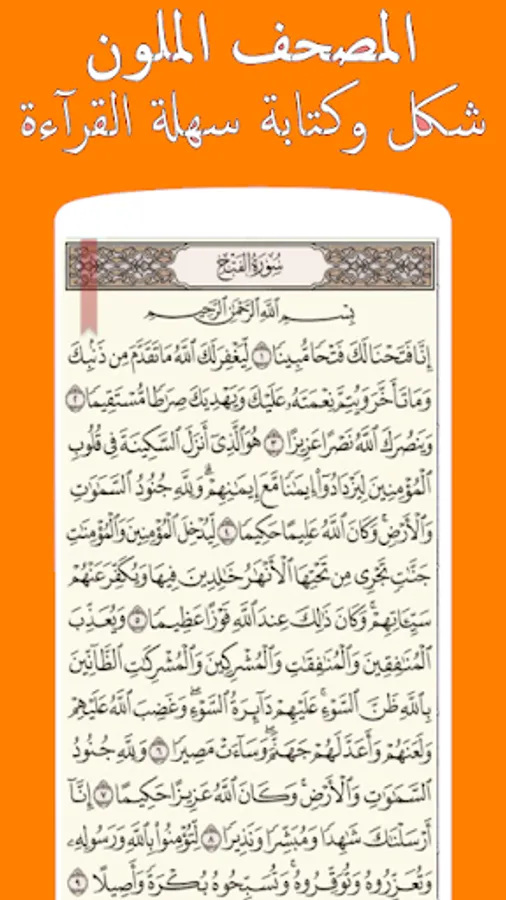 المصحف الملون
شكل وكتابة سهلة القرآءة
سُورَةُ الفَتْحِ
بِسْمِ ٱللَّهِ ٱلرَّحْمَٰنِ ٱلرَّحِيمِ
إِنَّا فَتَحْنَا لَكَ فَتْحًا مُّبِينًا ١ لِّيَغْفِرَ لَكَ ٱللَّهُ مَا تَقَدَّمَ مِن ذَنۢبِكَ
وَمَا تَأَخَّرَ وَيُتِمَّ نِعْمَتَهُۥ عَلَيْكَ وَيَهْدِيَكَ صِرَٰطًا مُّسْتَقِيمًا ٢
وَيَنصُرَكَ ٱللَّهُ نَصْرًا عَزِيزًا ٣ هُوَ ٱلَّذِىٓ أَنزَلَ ٱلسَّكِينَةَ فِى قُلُوبِ
ٱلْمُؤْمِنِينَ لِيَزْدَادُوٓا۟ إِيمَٰنًا مَّعَ إِيمَٰنِهِمْ ۗ وَلِلَّهِ جُنُودُ ٱلسَّمَٰوَٰتِ
وَٱلْأَرْضِ ۚ وَكَانَ ٱللَّهُ عَلِيمًا حَكِيمًا ٤ لِّيُدْخِلَ ٱلْمُؤْمِنِينَ وَٱلْمُؤْمِنَٰتِ
جَنَّٰتٍ تَجْرِى مِن تَحْتِهَا ٱلْأَنْهَٰرُ خَٰلِدِينَ فِيهَا وَيُكَفِّرَ عَنْهُمْ
سَيِّـَٔاتِهِمْ ۚ وَكَانَ ذَٰلِكَ عِندَ ٱللَّهِ فَوْزًا عَظِيمًا ٥ وَيُعَذِّبَ
ٱلْمُنَٰفِقِينَ وَٱلْمُنَٰفِقَٰتِ وَٱلْمُشْرِكِينَ وَٱلْمُشْرِكَٰتِ ٱلظَّآنِّينَ
بِٱللَّهِ ظَنَّ ٱلسَّوْءِ ۚ عَلَيْهِمْ دَآئِرَةُ ٱلسَّوْءِ ۖ وَغَضِبَ ٱللَّهُ عَلَيْهِمْ
وَلَعَنَهُمْ وَأَعَدَّ لَهُمْ جَهَنَّمَ ۖ وَسَآءَتْ مَصِيرًا ٦ وَلِلَّهِ جُنُودُ
ٱلسَّمَٰوَٰتِ وَٱلْأَرْضِ ۚ وَكَانَ ٱللَّهُ عَزِيزًا حَكِيمًا ٧ إِنَّآ
أَرْسَلْنَٰكَ شَٰهِدًا وَمُبَشِّرًا وَنَذِيرًا ٨ لِّتُؤْمِنُوا۟ بِٱللَّهِ وَرَسُولِهِۦ
وَتُعَزِّرُوهُ وَتُوَقِّرُوهُ ۚ وَتُسَبِّحُوهُ بُكْرَةً وَأَصِيلًا ٩